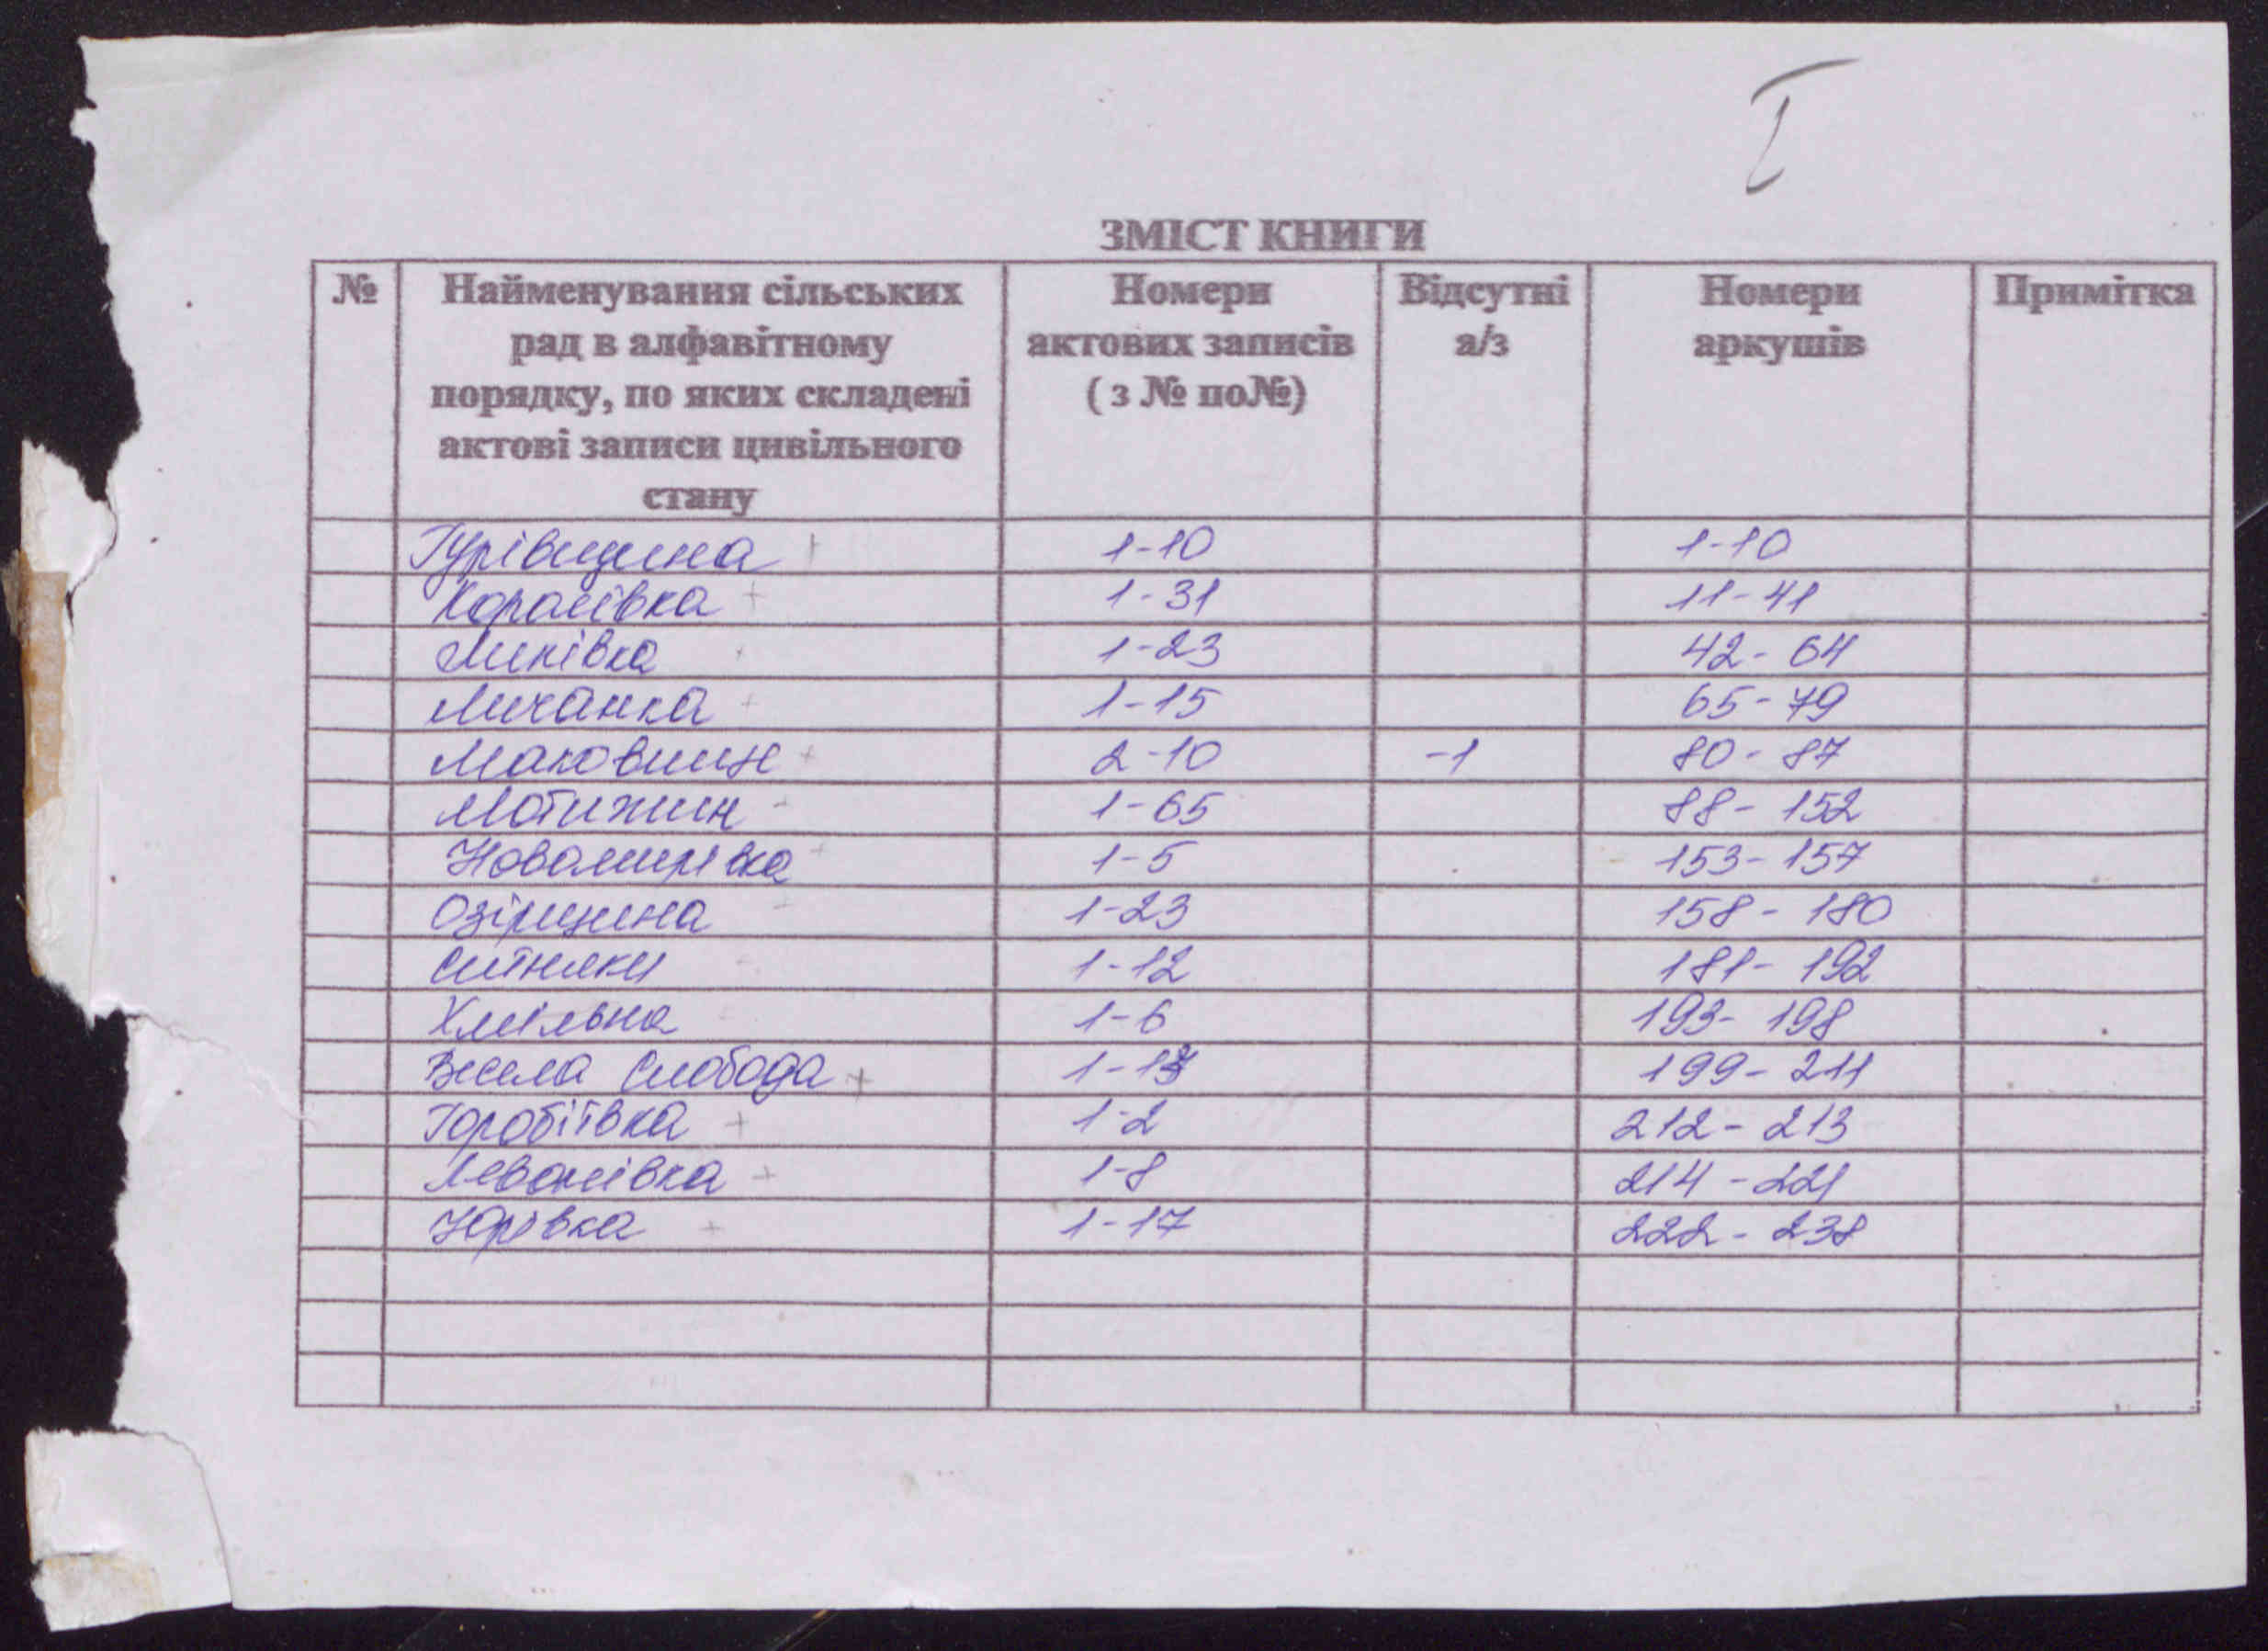 I
ЗМІСТ КНИГИ
№ Найменування сільських рад в алфавітному порядку, по яких складені актові записи цивільного стану Номери актових записів ( з № по№) Відсутні а/з Номери аркушів Примітка
Гурівщина + 1-10 1-10
Королівка + 1-31 11-41
Липівка 1-23 42-64
Личанка + 1-15 65-79
Маковище + 2-10 -1 80-87
Мотижин - 1-65 88-152
Новомирівка + 1-5 153-157
Озірщина - 1-23 158-180
Ситняки - 1-12 181-192
Хмільна 1-6 193-198
Весела Слобода + 1-13 199-211
Горобіївка + 1-2 212-213
Леонівка + 1-8 214-221
Юрівка + 1-17 222-238